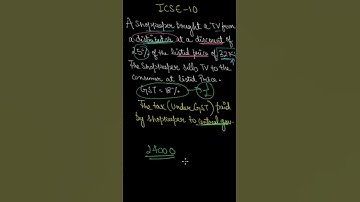 ICSE-10
A Shopkeeper bought a TV from
a distributor at a discount of
25% of the listed price of 32000
The Shopkeeper sells TV to the
consumer at listed Price.
GST = 18%
The tax (under GST) paid
by Shopkeeper to central gov.
24000